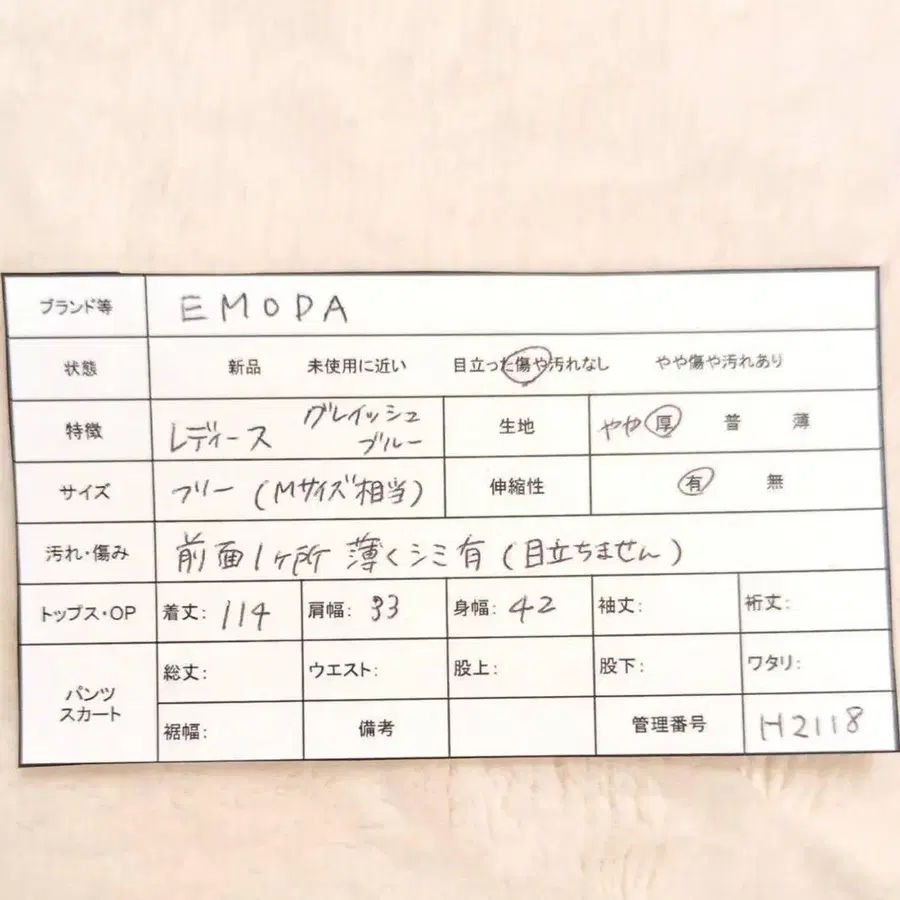 ブランド等 EMODA
状態 新品 未使用に近い 目立った傷や汚れなし やや傷や汚れあり
特徴 レディース グレイッシュ
ブルー 生地 やや厚 普 薄
サイズ フリー (Mサイズ相当) 伸縮性 有 無
汚れ・傷み 前面1ヶ所 薄くシミ有 (目立ちません)
トップス・OP 着丈: 114 肩幅: 33 身幅: 42 袖丈: 裄丈:
パンツ
スカート 総丈: ウエスト: 股上: 股下: ワタリ:
裾幅: 備考 管理番号 H2118